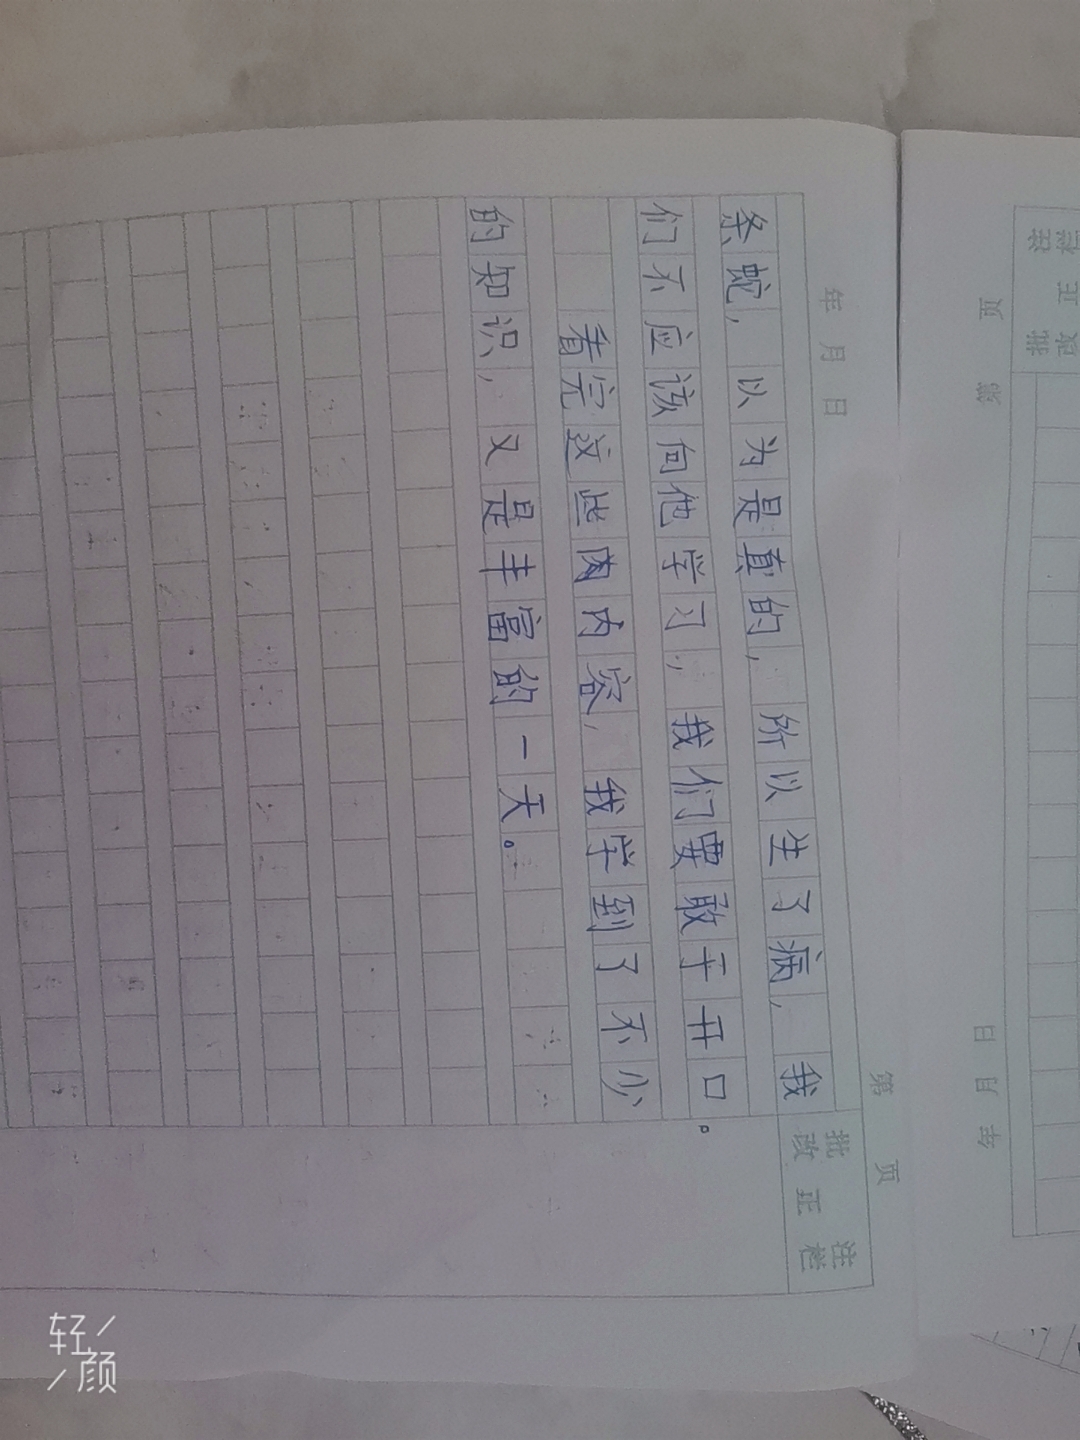 年 月 日
第 页
条蛇，以为是真的，所以生了病，我
们不应该向他学习，我们要敢于开口。
看完这些肉内容，我学到了不少
的知识，又是丰富的一天。
批 正 注
改 栏
第 页
年 月 日
批 正 注
改 栏
轻颜